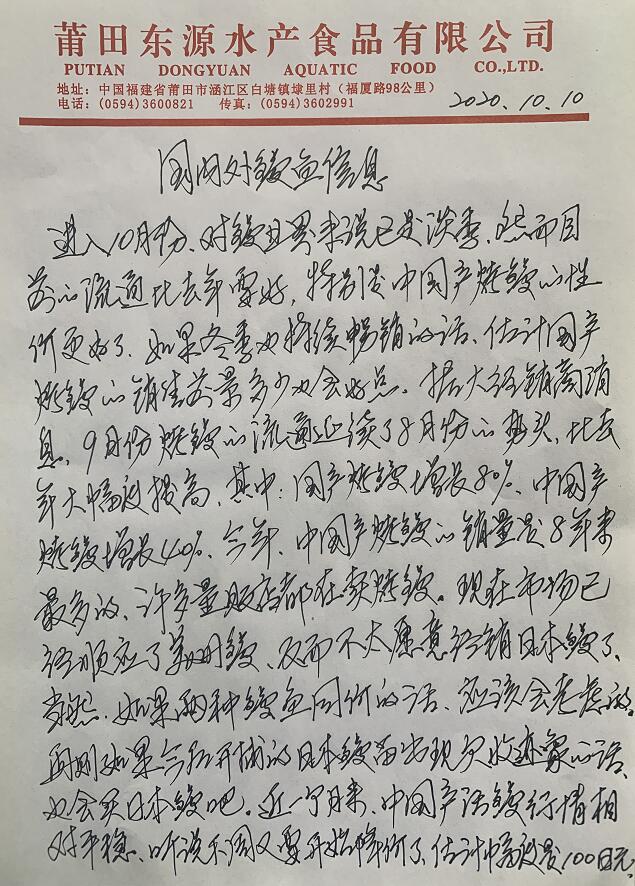 莆田东源水产食品有限公司
PUTIAN DONGYUAN AQUATIC FOOD CO.,LTD.
地址：中国福建省莆田市涵江区白塘镇埭里村（福厦路98公里）
电话：(0594)3600821 传真：(0594)3602991
2020.10.10
国内对鳗鱼信息
进入10月份、对鳗鱼界来说已是淡季、然而目
前的流通比去年要好，特别是中国产烧鳗的性
价更好了、如果冬季也持续畅销的话、估计国产
烧鳗的销售前景多少也会好点、据大经销商消
息、9月份烧鳗的流通延续了8月份的势头、比去
年大幅度提高、其中：国产烧鳗增长80%、中国产
烧鳗增长40%、今年、中国产烧鳗的销量是8年来
最多的、许多量贩店都在卖烧鳗。现在市场已
经顺应了美洲鳗、反而不太愿意经销日本鳗了、
当然、如果两种鳗鱼同价的话、应该会考虑的。
再则如果今后开捕的日本鳗苗出现欠收迹象的话、
也会买日本鳗吧。近一个月来、中国产活鳗行情相
对平稳、听说下周又要开始降价了、估计幅度是100日元